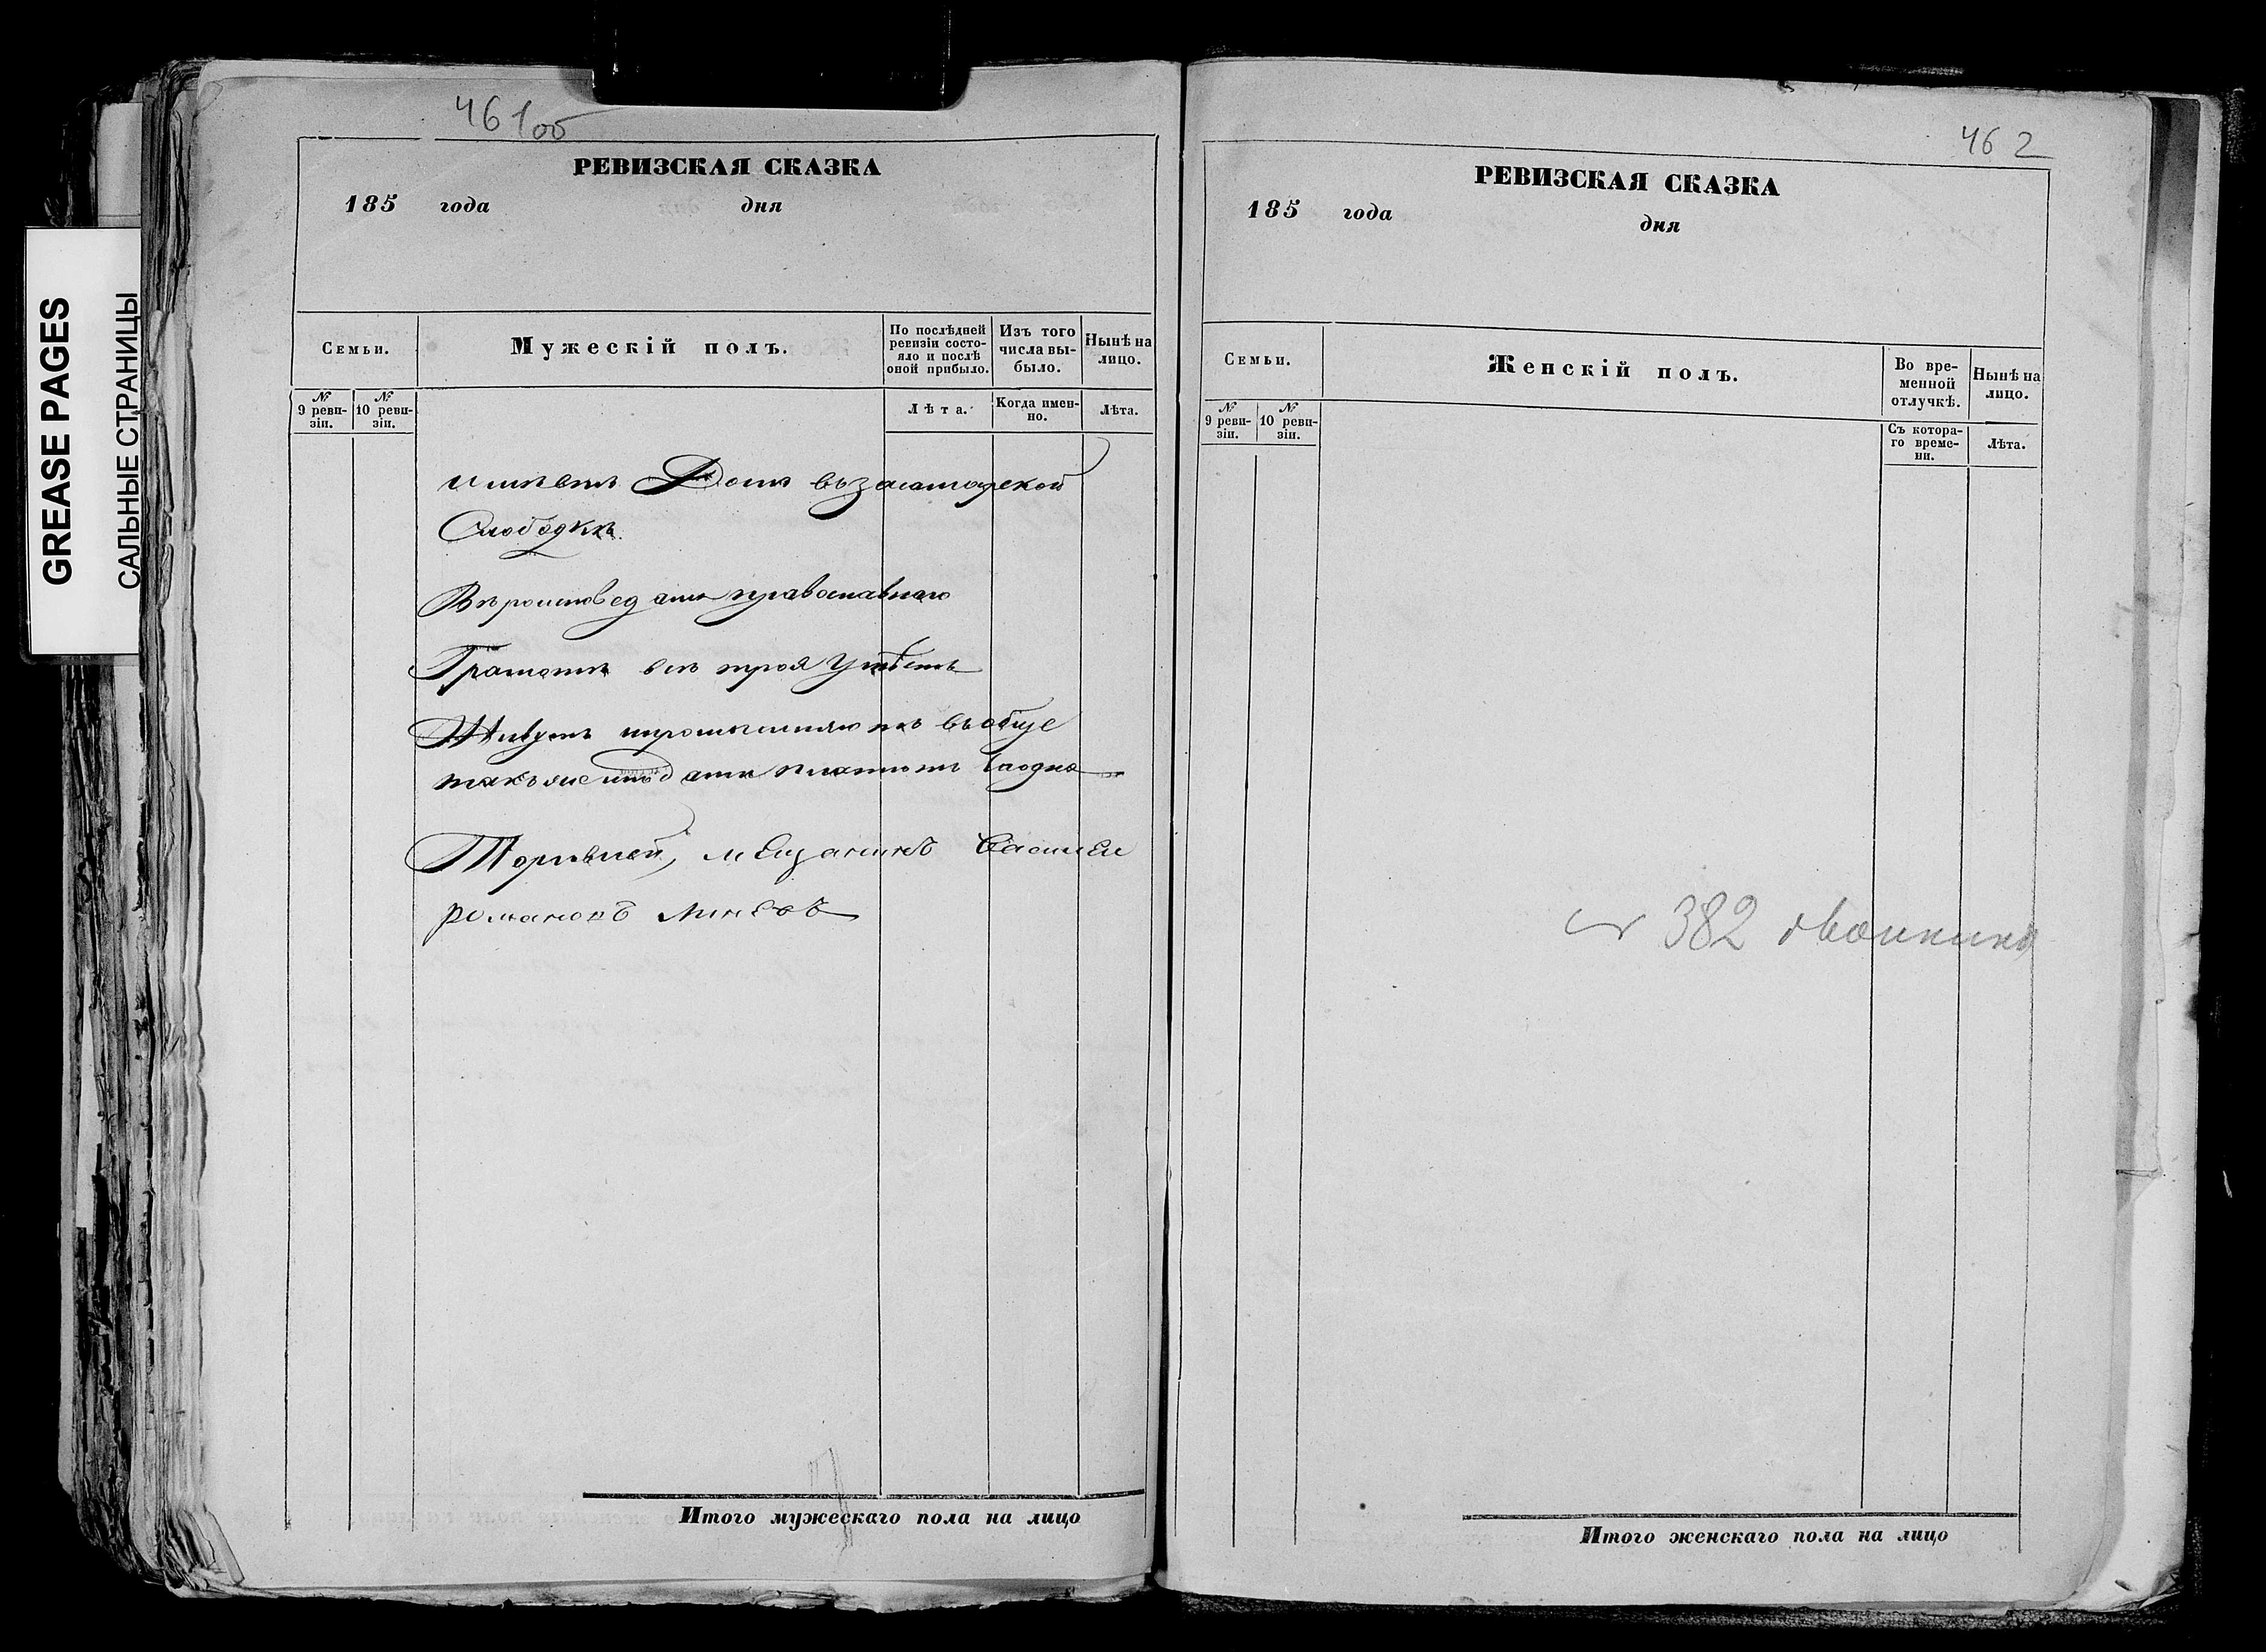 GREASE PAGES
САЛЬНЫЕ СТРАНИЦЫ
461об
РЕВИЗСКАЯ СКАЗКА
185 года дня
Семьи.
Мужескій полъ.
По послѣдней ревизіи состо-
яло и послѣ
оной прибыло.
Изъ того
числа вы-
было.
Нынѣ на
лицо.
№
9 реви-
зіи.
№
10 реви-
зіи.
Лѣта.
Когда имен-
но.
Лѣта.
имѣетъ Домъ въ
Слободкѣ.
православнаго
Грамотѣ всѣ троя умѣютъ
Живутъ въобще
такъже платютъ заодно
мещанинъ Василей
романовъ Минеевъ
Итого мужескаго пола на лицо
462
РЕВИЗСКАЯ СКАЗКА
185 года
дня
Семьи.
Женскій полъ.
Во вре-
менной
отлучкѣ.
Нынѣ на
лицо.
№
9 реви-
зіи.
№
10 реви-
зіи.
Съ котора-
го време-
ни.
Лѣта.
382
Итого женскаго пола на лицо